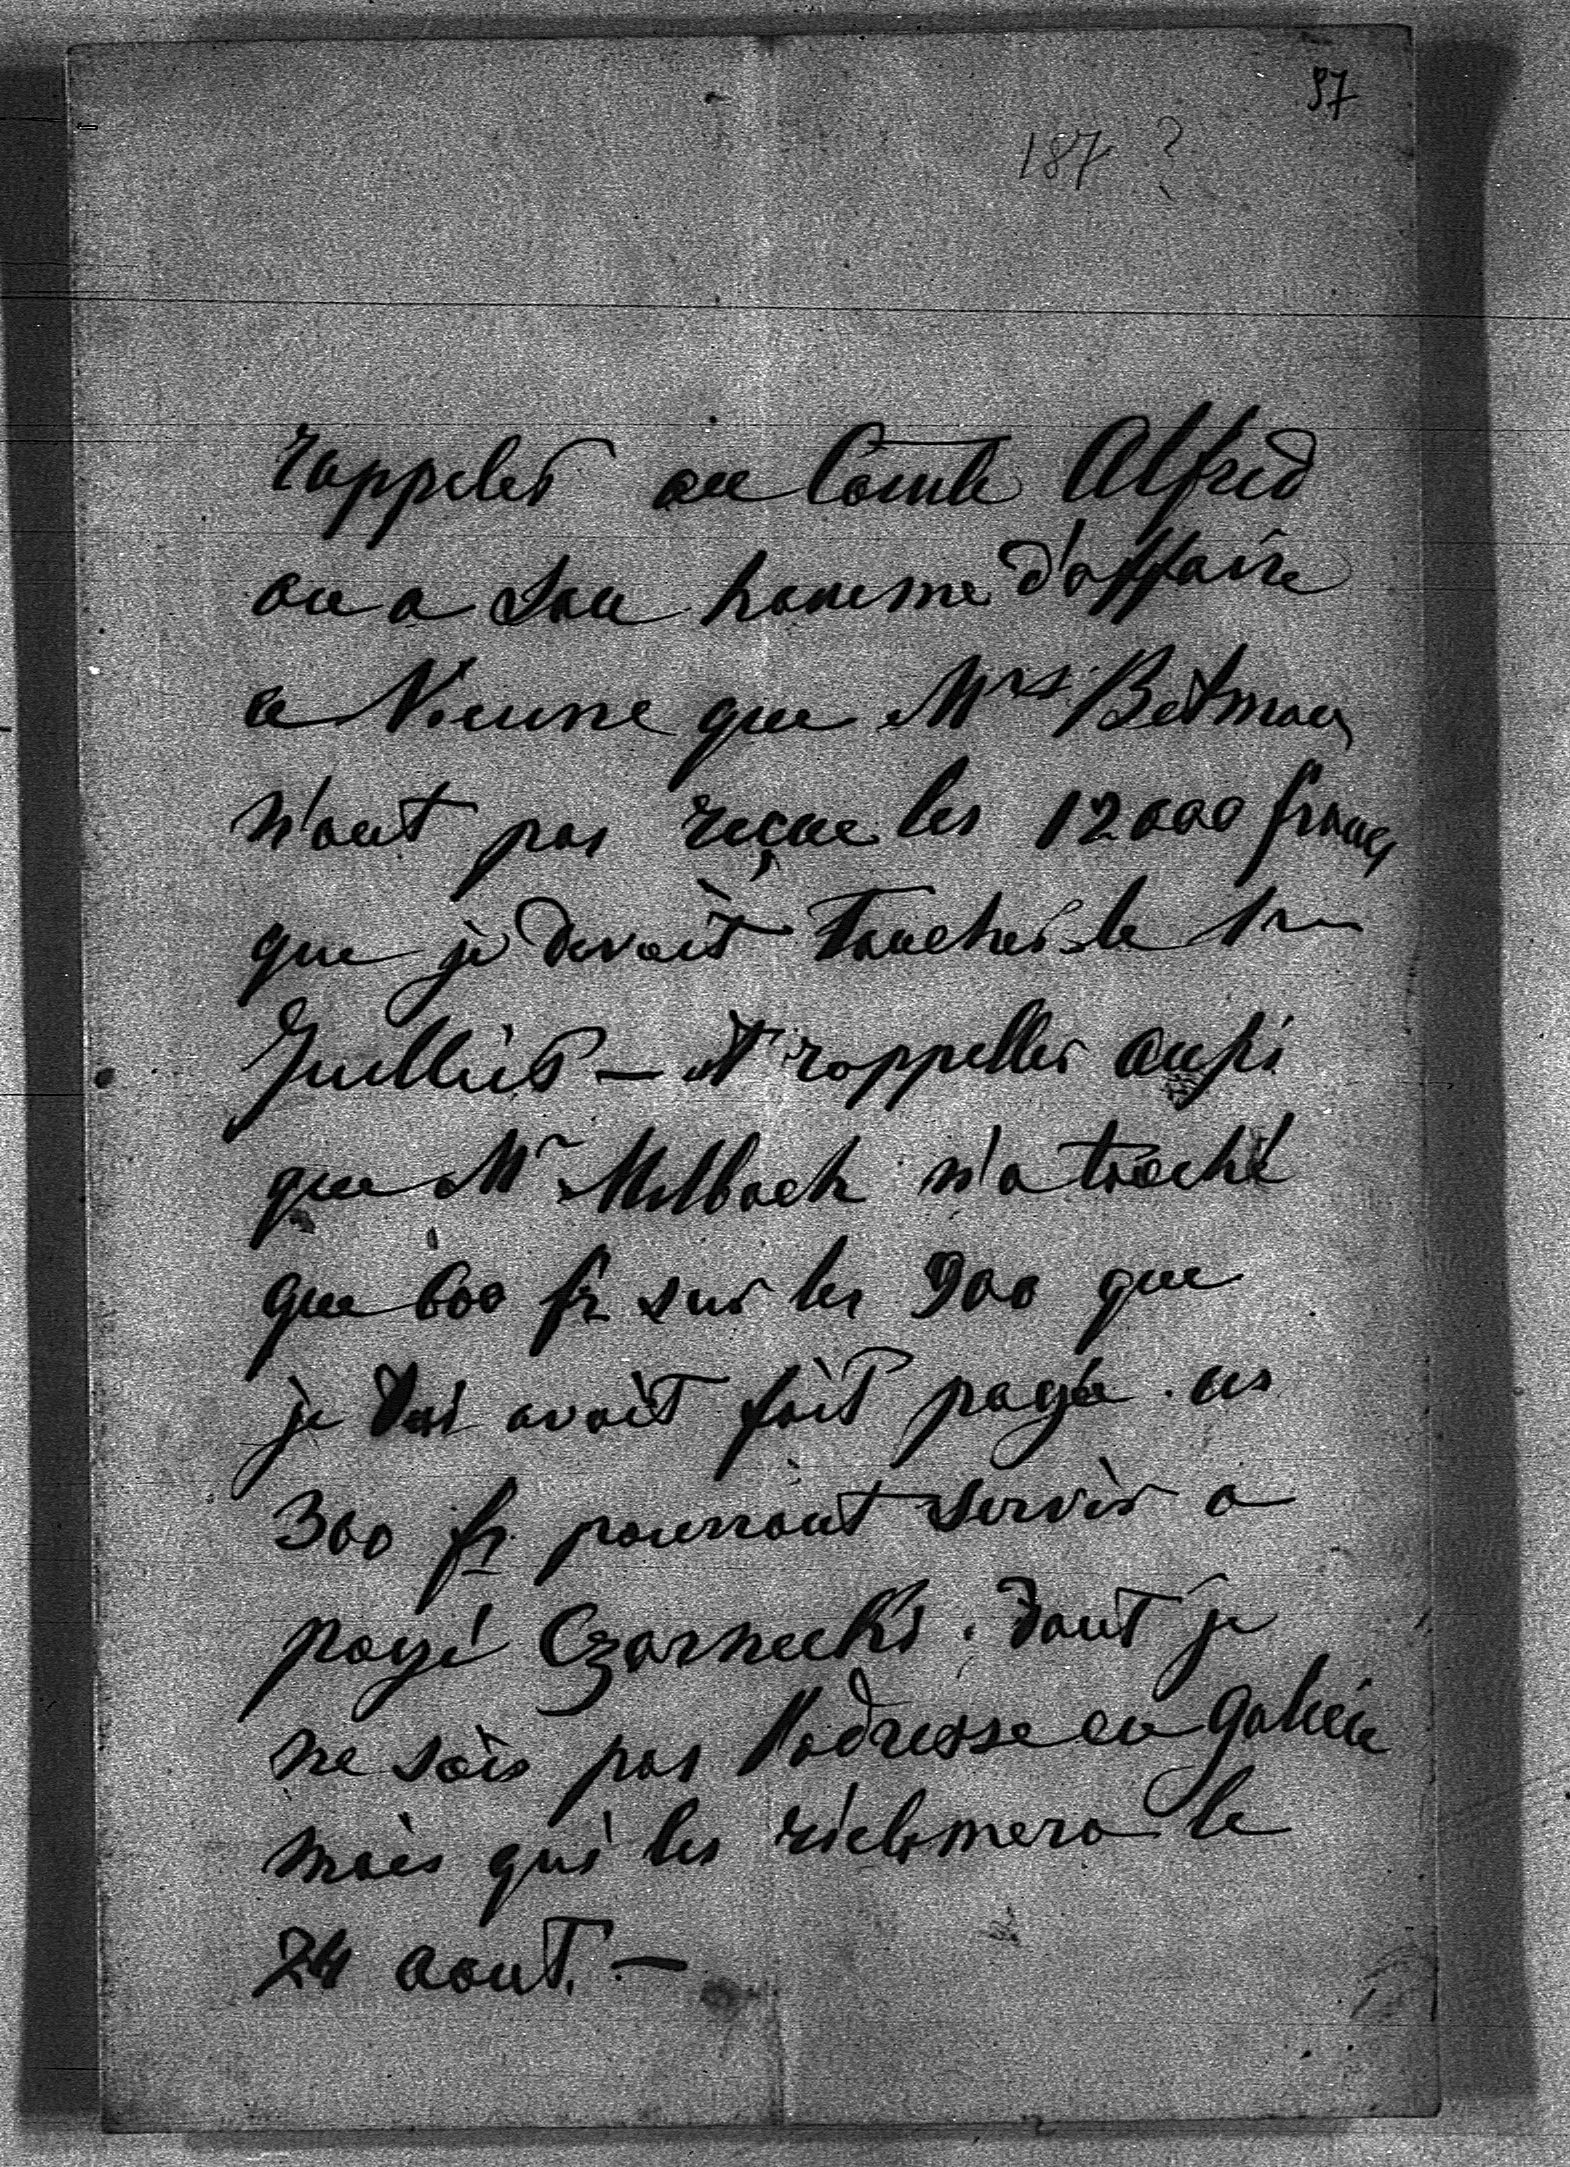 97
187 ?
rappeler au Comte Alfred
ou a son homme d'affaire
a Vienne que Mrs Betman
n'ont pas reçue les 12000 francs
que je devait toucher le 1r
Juillièt — et rappeller aussi
que Mr Milbach n'a touché
que 600 fr sur les 900 que
je lui avait fait payée. ces
300 fr pourront servir a
payé Czarnecki. dont je
ne sais pas l'adresse en Galicie
mais qui les réclamera le
24 aout. —